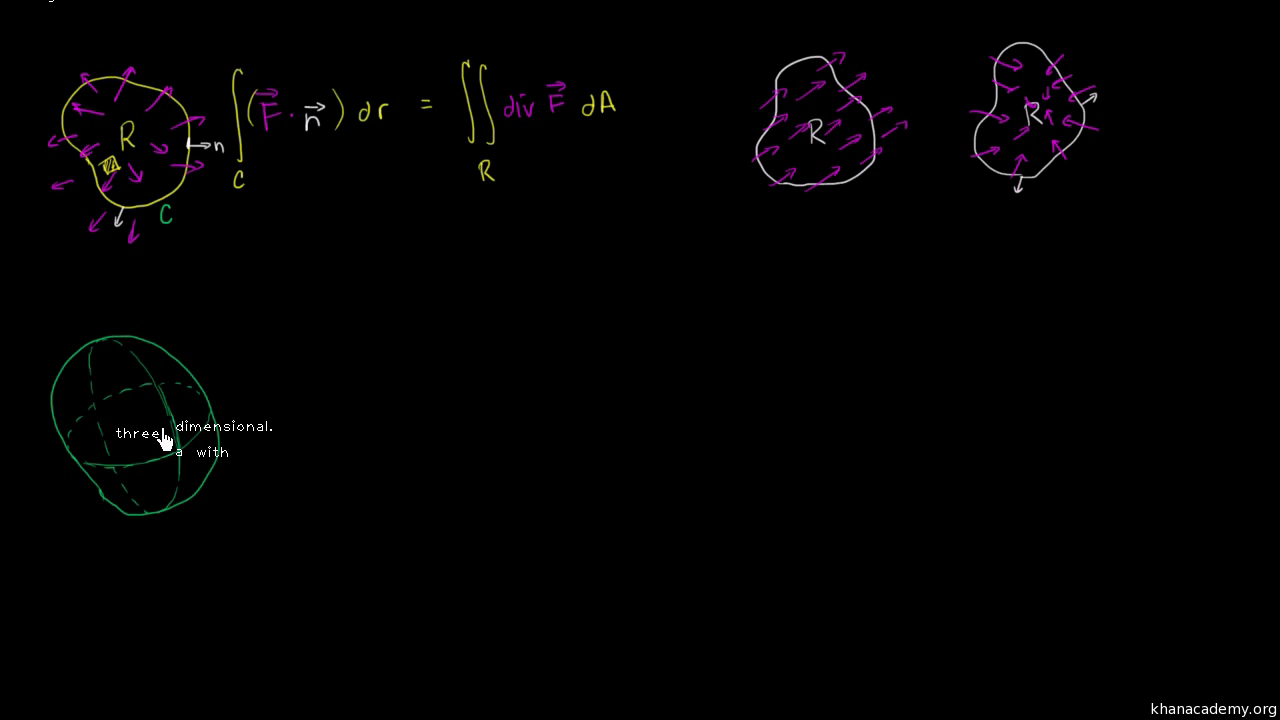 R
n
C
∫_C (F⃗ · n⃗) dr = ∬_R div F⃗ dA
R
R
three dimensional.
a with
khanacademy.org